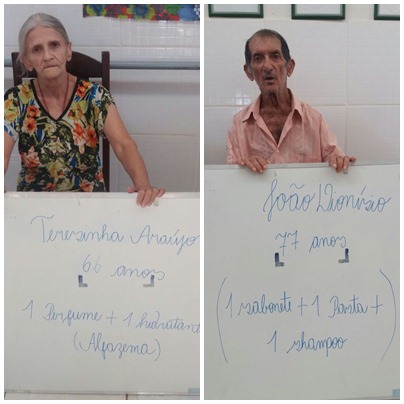 Teresinha Araújo
66 anos
1 Perfume + 1 hidratant
(Alfazema)
João Dionisio
77 anos
(1 sabonete + 1 Pasta +
1 shampoo)